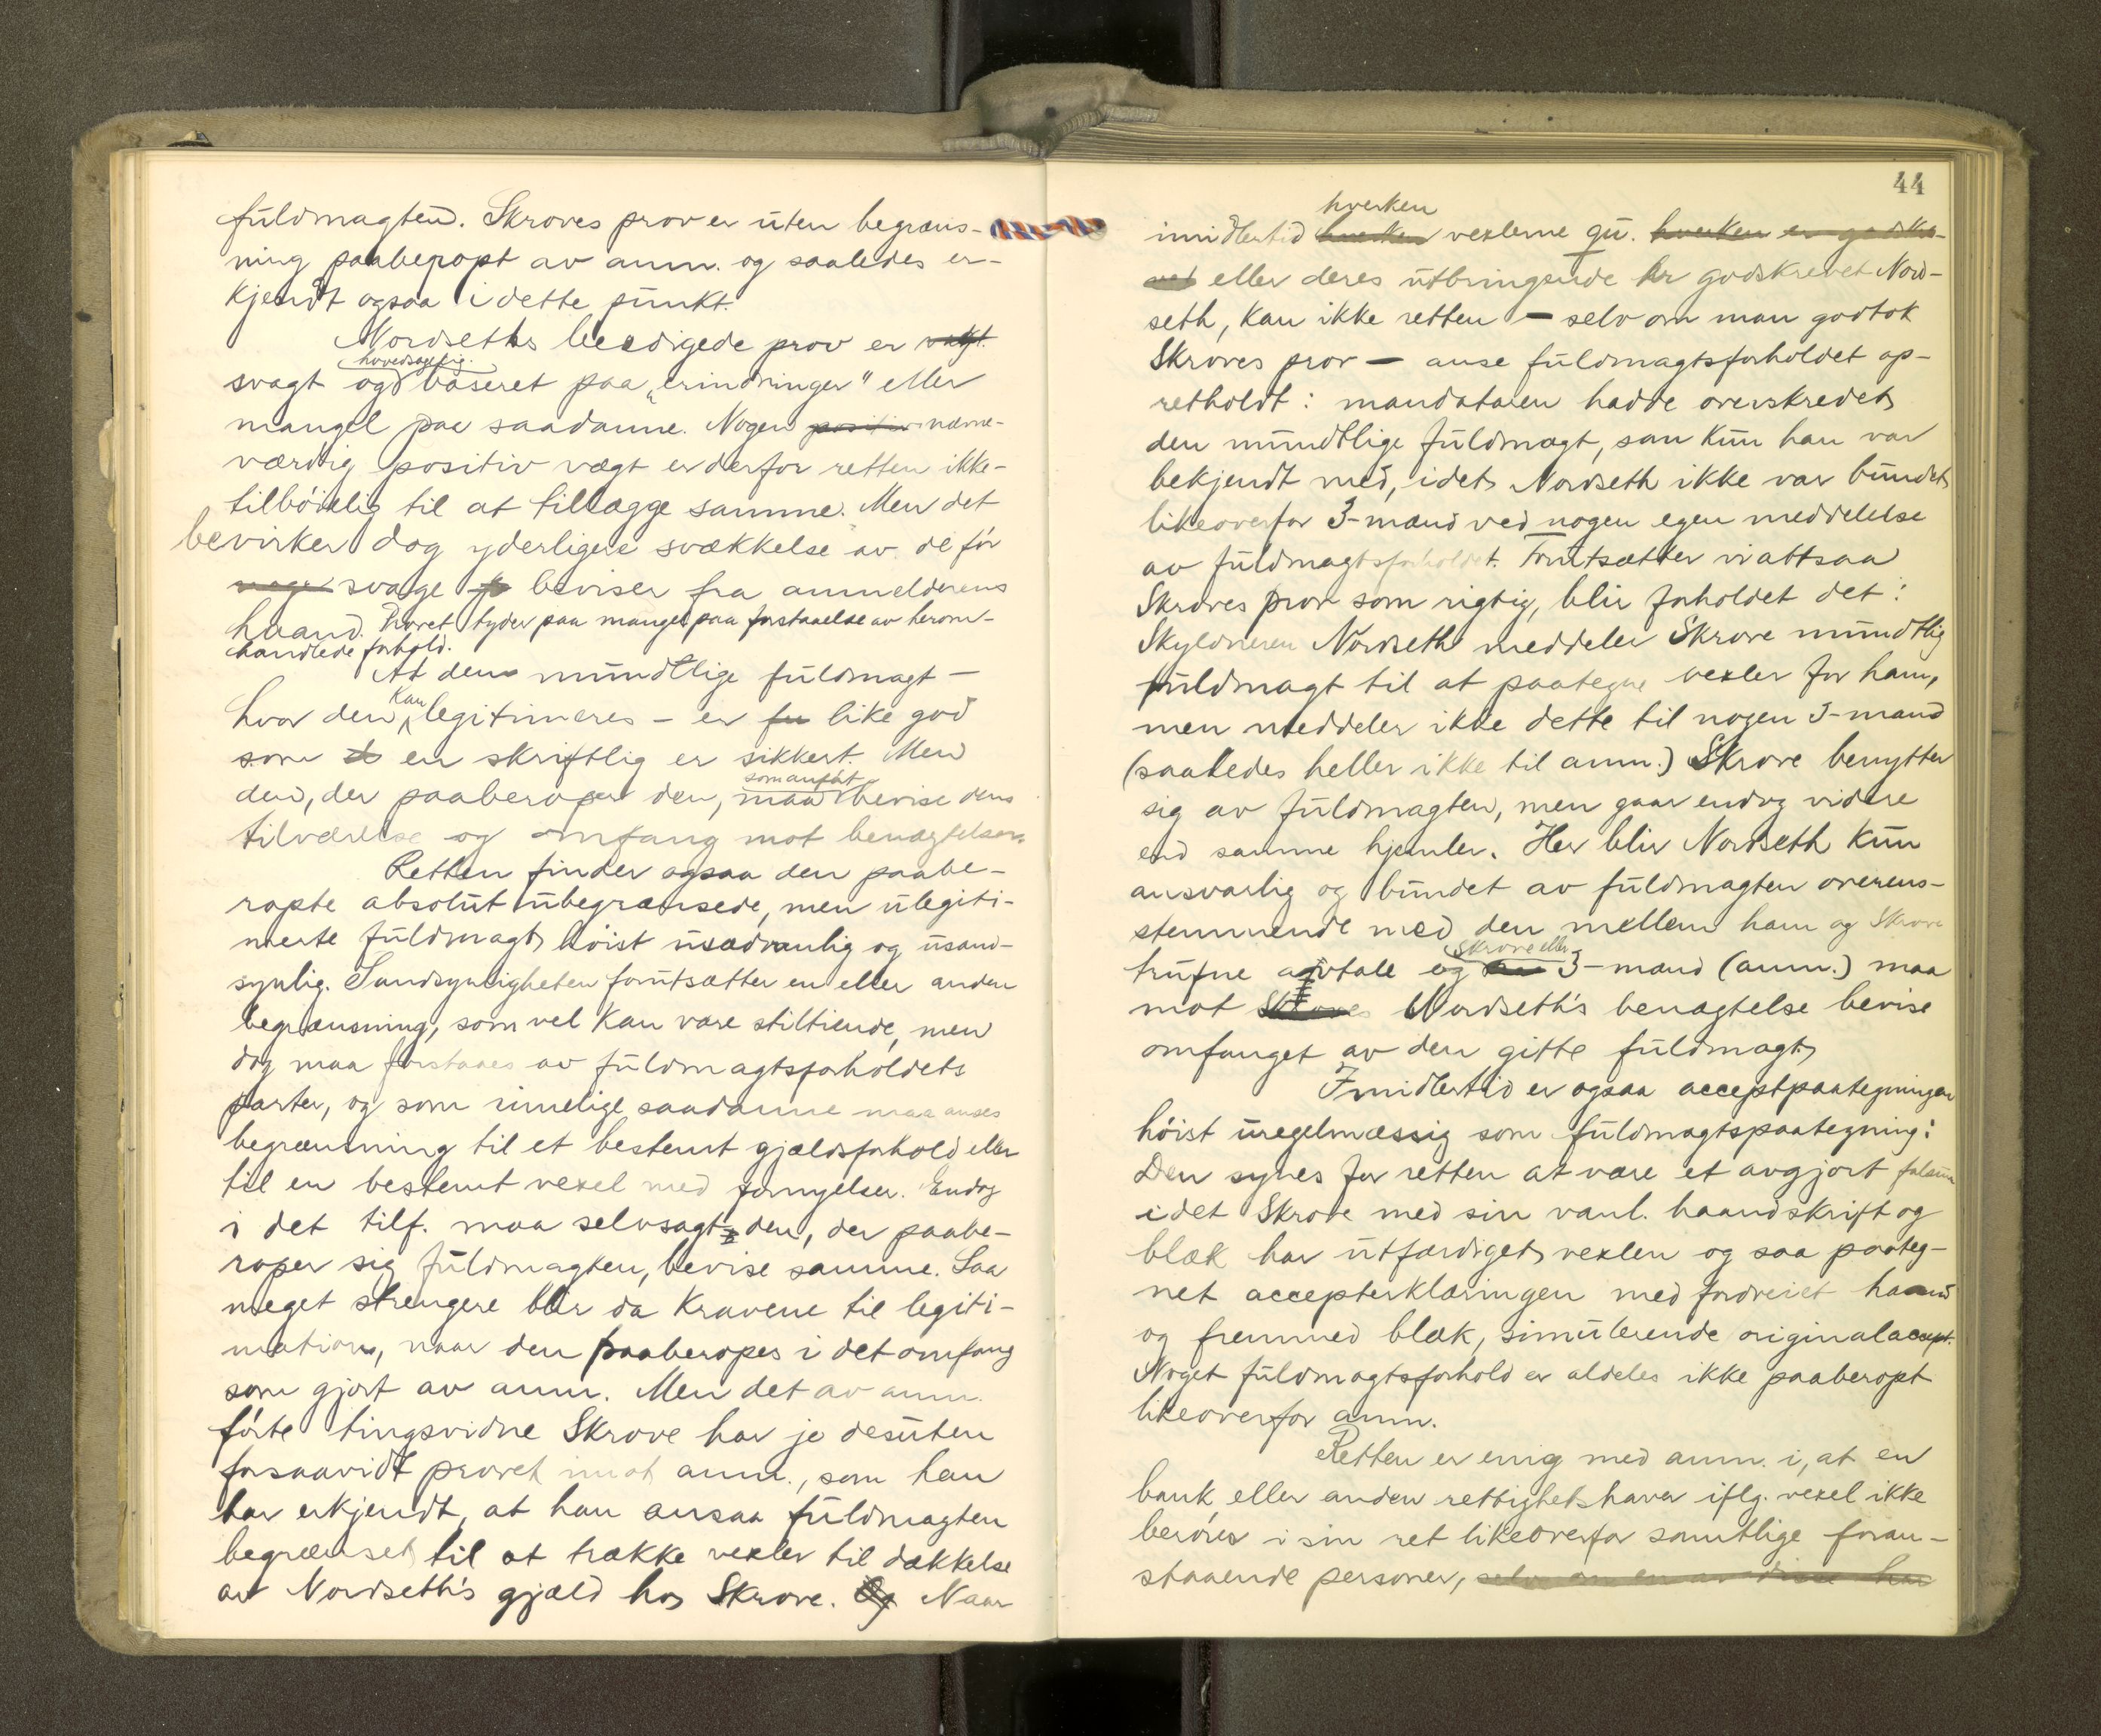 fuldmagten. Skroves prov er uten begræns-
ning paaberopt av anm. og saaledes er-
kjendt ogsaa i dette punkt.
Nordseths beedigede prov er vagt
hovedsagelig
svagt og baseret paa "erindringer" eller
mangel paa saadanne. Nogen positiv nævne-
værdig positiv vægt er derfor retten ikke
tilbøielig til at tillægge samme. Men det
bevirker dog yderligere svækkelse av de før
svage beviser fra anmelderens
haand. Provet tyder paa mangel paa forstaaelse av herom-
handlede forhold.
At den mundtlige fuldmagt -
kan
hvor den legitimeres - er fu like god
som en skriftlig er sikkert. Men
som anført
den, der paaberoper den, maa bevise dens
tilværelse og omfang mot benægtelsen.
Retten finder ogsaa den paabe-
ropte absolut ubegrænsede, men ulegiti-
merte fuldmagt høist usædvanlig og usand-
synlig. Sandsynligheten forutsætter en eller anden
begrænsning, som vel kan være stiltiende, men
dog maa forstaaes av fuldmagtsforholdets
parter, og som rimelige saadanne maa anses
begrænsning til et bestemt gjældsforhold eller
til en bestemt vexel med fornyelser. Endog
i det tilf. maa selvsagt den, der paabe-
roper sig fuldmagten, bevise samme. Saa
meget strengere blir da kravene til legiti-
mation, naar den paaberopes i det omfang
som gjort av anm. Men det av anm.
førte tingsvidne Skrove har jo desuten
forsaavidt provet imot anm., som han
har erkjendt, at han ansaa fuldmagten
begrænset til at trække vexler til dækkelse
av Nordseth's gjæld hos Skrove. Og Naar
44
hverken
imidlertid hverken vexlerne qu. hverken er godskre-
vet eller deres utbringende er godskrevet Nord-
seth, kan ikke retten - selv om man godtok
Skroves prov - anse fuldmagtsforholdet op-
retholdt: mandataren hadde overskredet
den mundtlige fuldmagt, som kun han var
bekjendt med, idet Nordseth ikke var bundet
likeoverfor 3-mand ved nogen egen meddelelse
av fuldmagtsforholdet. Forutsætter vi altsaa
Skroves prov som rigtig, blir forholdet det:
Skyldneren Nordseth meddeler Skrove mundtlig
fuldmagt til at paategne vexler for ham,
men meddeler ikke dette til nogen 3-mand
(saaledes heller ikke til anm.) Skrove benytter
sig av fuldmagten, men gaar endog videre
end samme hjemler. Her blir Nordseth kun
ansvarlig og bundet av fuldmagten overens-
stemmende med den mellem ham og Skrove
Skrove eller
trufne avtale og 3-mand (anm.) maa
mot Skroves Nordseth's benægtelse bevise
omfanget av den gitte fuldmagt.
Imidlertid er ogsaa acceptpaategningen
høist uregelmæssig som fuldmagtspaategning:
Den synes for retten at være et avgjort falsum
idet Skrove med sin vanl. haandskrift og
blæk har utfærdiget vexlen og saa paateg-
net accepterklæringen med fordreiet haand
og fremmed blæk, simulerende originalaccept.
Noget fuldmagtsforhold er aldeles ikke paaberopt
likeoverfor anm.
Retten er enig med anm. i, at en
bank eller anden rettighetshaver iflg. vexel ikke
berøres i sin ret likeoverfor samtlige foran-
staaende personer, selv om en av disse har